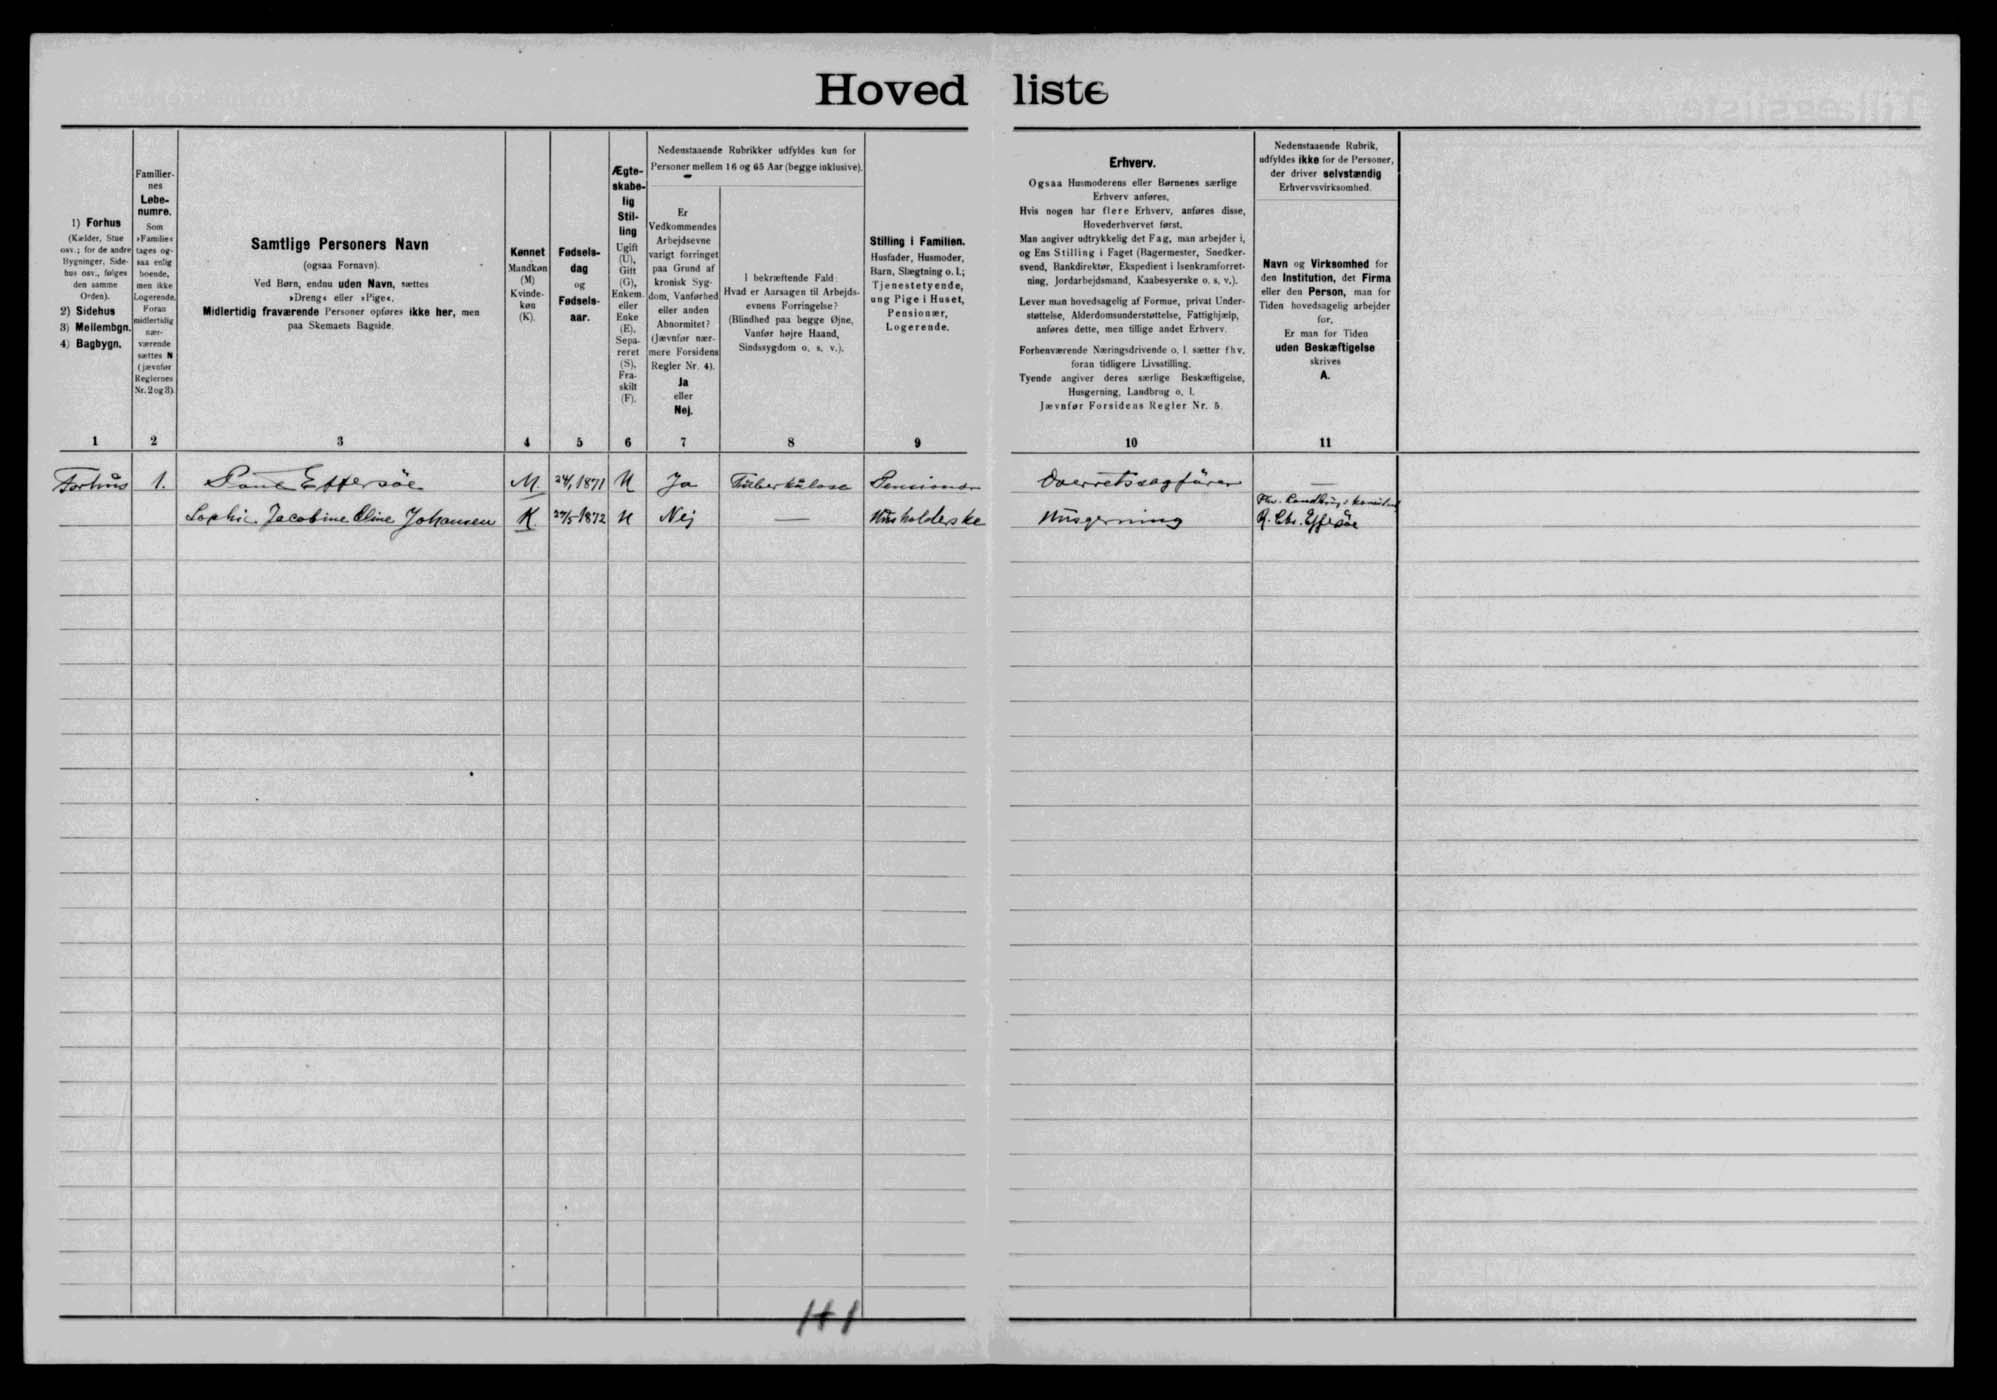 Hoved liste
1) Forhus
(Kælder, Stue
osv.; for de andre
Bygninger, Side-
hus osv., følges
den samme
Orden).
2) Sidehus
3) Mellembgn.
4) Bagbygn.
Familier-
nes
Løbe-
numre.
Som
»Familie«
tages og-
saa enlig
boende,
men ikke
Logerende.
Foran
midlertidig
nær-
værende
sættes N
(jævnfør
Reglernes
Nr. 2 og 3).
Samtlige Personers Navn
(ogsaa Fornavn).
Ved Børn, endnu uden Navn, sættes
»Dreng« eller »Pige«.
Midlertidig fraværende Personer opføres ikke her, men
paa Skemaets Bagside.
Kønnet
Mandkøn
(M)
Kvinde-
køn
(K).
Fødsels-
dag
og
Fødsels-
aar.
Ægte-
skabe-
lig
Stil-
ling
Ugift
(U),
Gift
(G),
Enkem.
eller
Enke
(E).
Sepa-
reret
(S),
Fra-
skilt
(F).
Nedenstaaende Rubrikker udfyldes kun for
Personer mellem 16 og 65 Aar (begge inklusive).
Er
Vedkommendes
Arbejdsevne
varigt forringet
paa Grund af
kronisk Syg-
dom, Vanførhed
eller anden
Abnormitet?
(Jævnfør nær-
mere Forsidens
Regler Nr. 4).
Ja
eller
Nej.
I bekræftende Fald:
Hvad er Aarsagen til Arbejds-
evnens Forringelse?
(Blindhed paa begge Øjne,
Vanfør højre Haand,
Sindssygdom o. s. v.).
Stilling i Familien.
Husfader, Husmoder,
Barn, Slægtning o. l.;
Tjenestetyende,
ung Pige i Huset,
Pensionær,
Logerende.
Erhverv.
Ogsaa Husmoderens eller Børnenes særlige
Erhverv anføres.
Hvis nogen har flere Erhverv, anføres disse,
Hovederhvervet først.
Man angiver udtrykkelig det Fag, man arbejder i,
og Ens Stilling i Faget (Bagermester, Snedker-
svend, Bankdirektør, Ekspedient i Isenkramforret-
ning, Jordarbejdsmand, Kaabesyerske o. s. v.).
Lever man hovedsagelig af Formue, privat Under-
støttelse, Alderdomsunderstøttelse, Fattighjælp,
anføres dette, men tillige andet Erhverv.
Forhenværende Næringsdrivende o. l. sætter fhv.
foran tidligere Livsstilling.
Tyende angiver deres særlige Beskæftigelse,
Husgerning, Landbrug o. l.
Jævnfør Forsidens Regler Nr. 5.
Nedenstaaende Rubrik,
udfyldes ikke for de Personer,
der driver selvstændig
Erhvervsvirksomhed.
Navn og Virksomhed for
den Institution, det Firma
eller den Person, man for
Tiden hovedsagelig arbejder
for.
Er man for Tiden
uden Beskæftigelse
skrives
A.
1 2 3 4 5 6 7 8 9 10 11
Forhus 1. Effersöe M 24/1 1871 U Ja Tuberkulose Pensionær Overretssagfører —
Sophie Jacobine Eline Johansen K 27/5 1872 U Nej — Husholderske Husgerning R. Chr. Effersöe